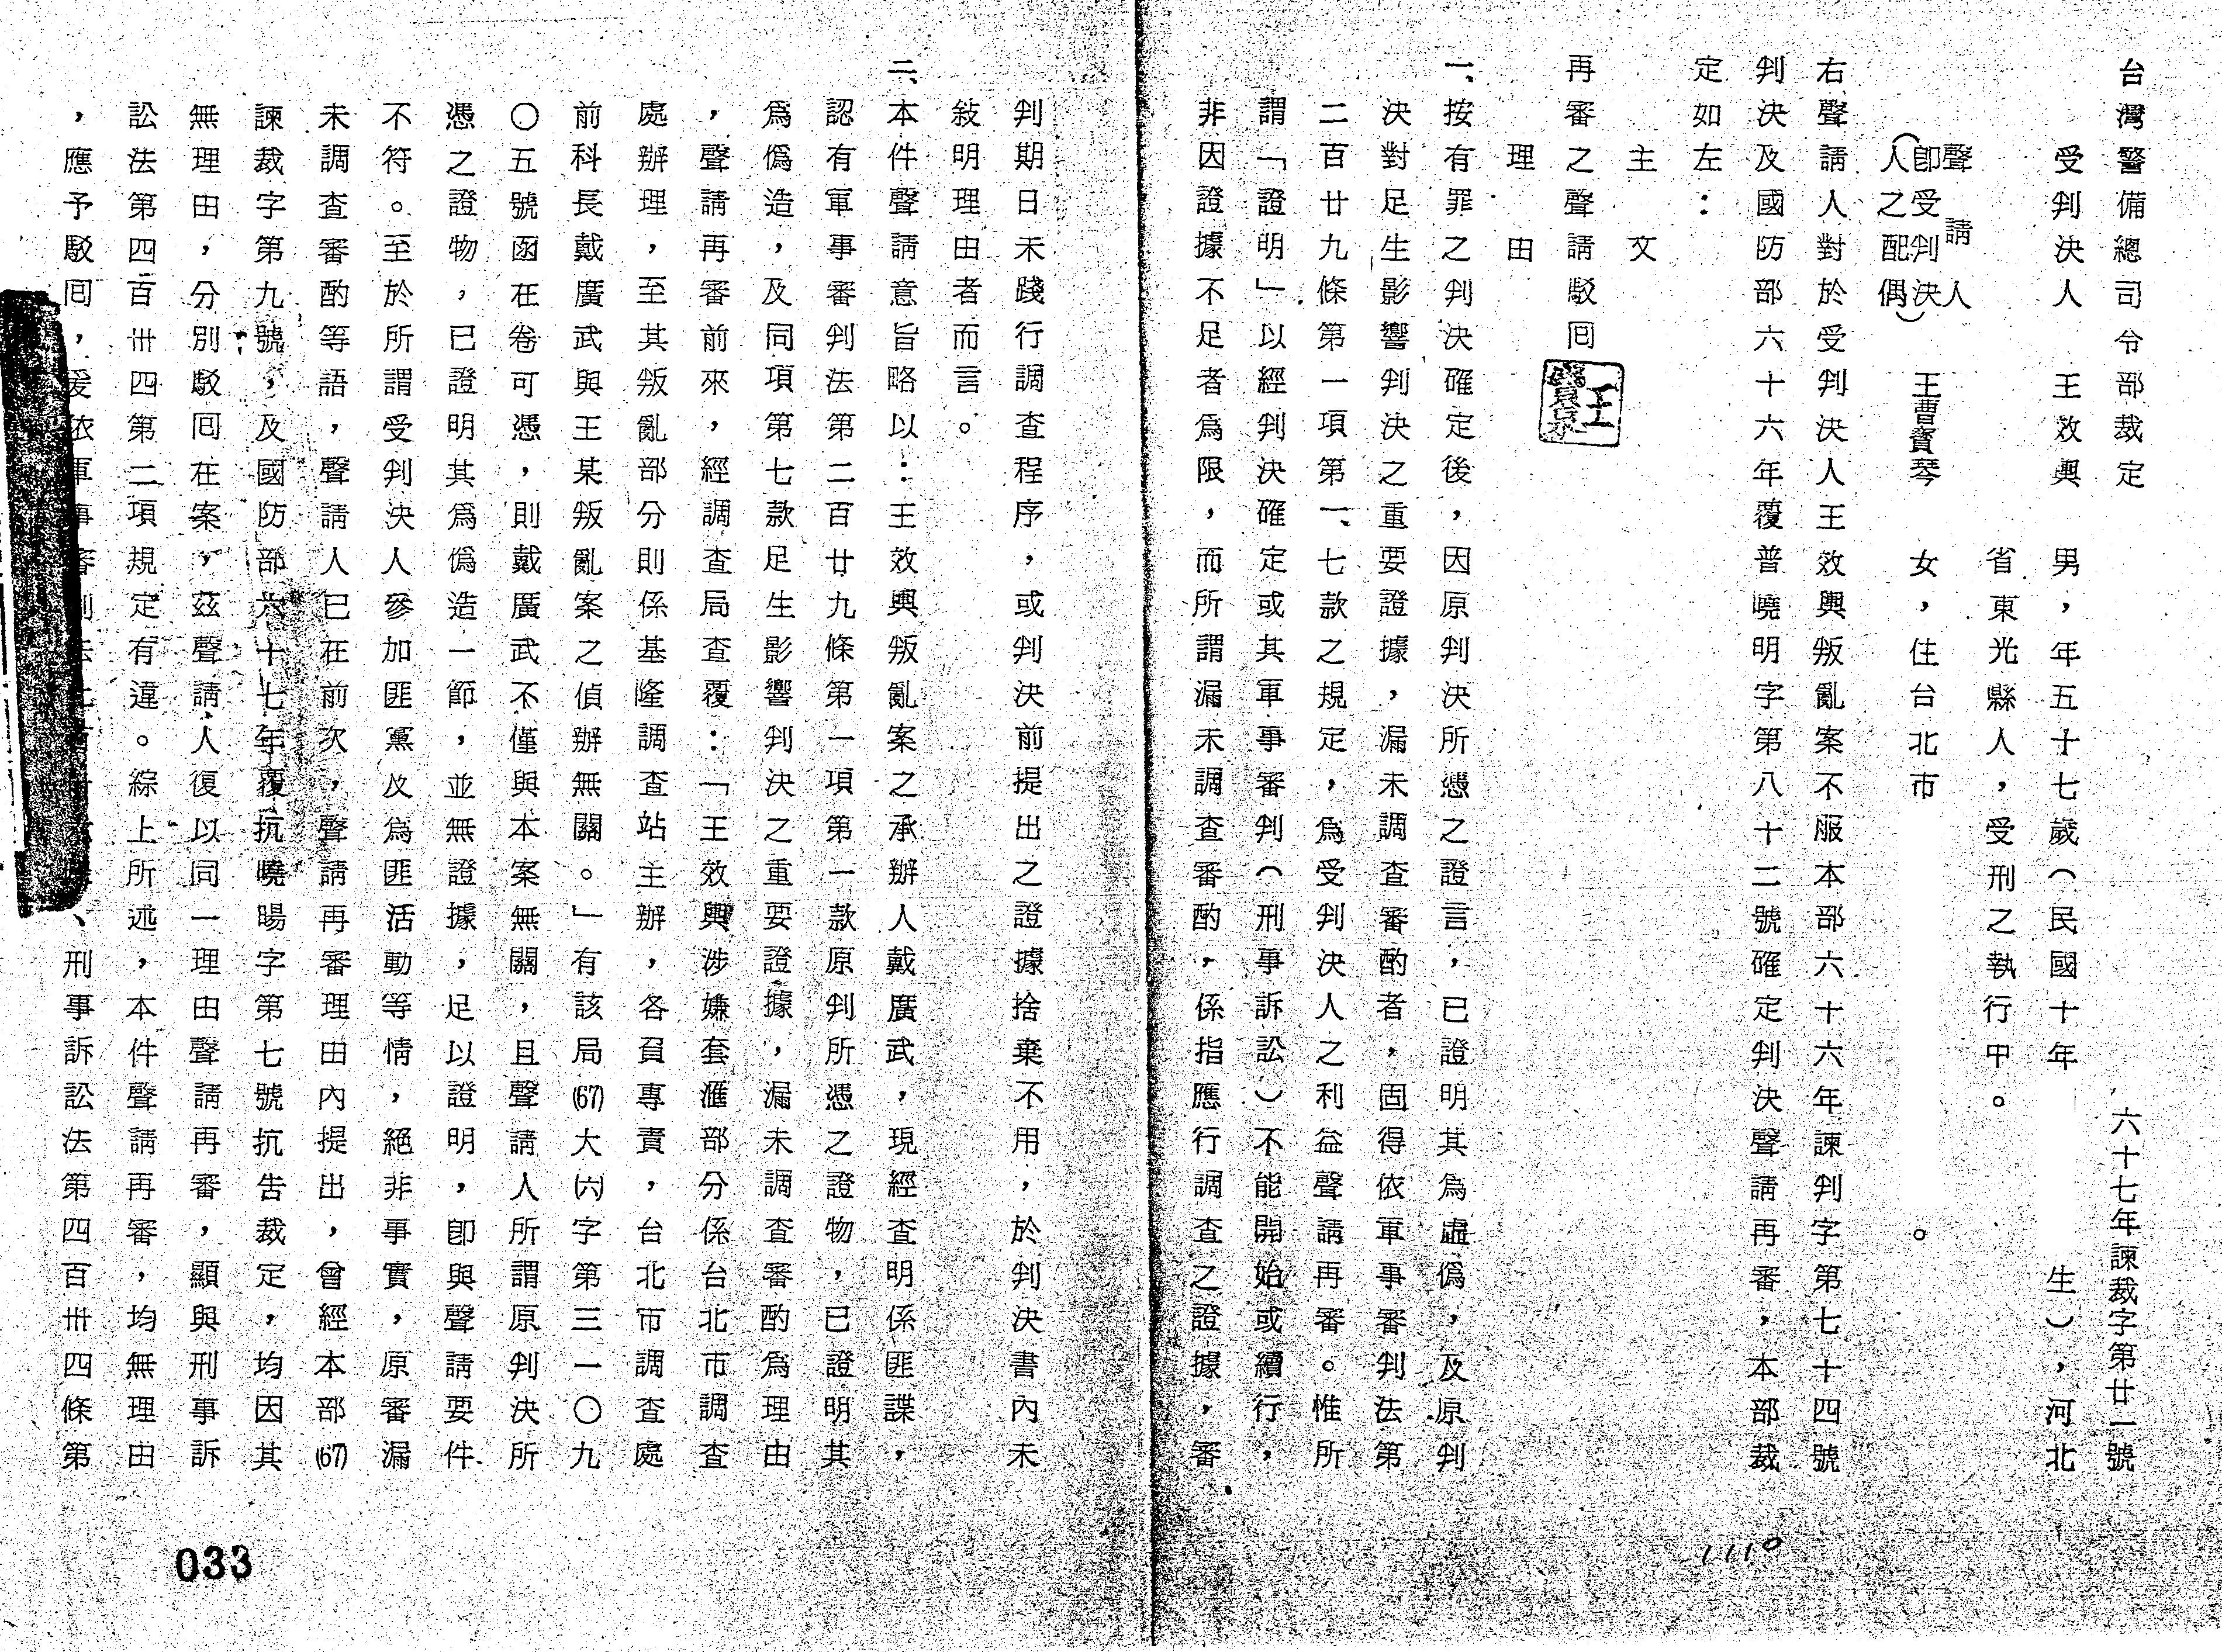 台灣警備總司令部裁定
六十七年諫裁字第廿一號
受判決人　王效興　男，年五十七歲（民國十年　生），河北
省東光縣人，受刑之執行中。
聲請人
（即受判決
人之配偶）　王曹賓琴　女，住台北市　。
右聲請人對於受判決人王效興叛亂案不服本部六十六年諫判字第七十四號
判決及國防部六十六年覆普曉明字第八十二號確定判決聲請再審，本部裁
定如左：
主文
再審之聲請駁回
理由
一、按有罪之判決確定後，因原判決所憑之證言，已證明其為虛偽，及原判
決對足生影響判決之重要證據，漏未調查審酌者，固得依軍事審判法第
二百廿九條第一項第一、七款之規定，為受判決人之利益聲請再審。惟所
謂「證明」以經判決確定或其軍事審判（刑事訴訟）不能開始或續行，
非因證據不足者為限，而所謂漏未調查審酌，係指應行調查之證據，審
判期日未踐行調查程序，或判決前提出之證據捨棄不用，於判決書內未
敍明理由者而言。
二、本件聲請意旨略以：王效興叛亂案之承辦人戴廣武，現經查明係匪諜，
認有軍事審判法第二百廿九條第一項第一款原判所憑之證物，已證明其
為偽造，及同項第七款足生影響判決之重要證據，漏未調查審酌為理由
，聲請再審前來，經調查局查覆：「王效興涉嫌套滙部分係台北市調查
處辦理，至其叛亂部分則係基隆調查站主辦，各負專責，台北市調查處
前科長戴廣武與王某叛亂案之偵辦無關。」有該局(67)大(六)字第三一〇九
〇五號函在卷可憑，則戴廣武不僅與本案無關，且聲請人所謂原判決所
憑之證物，已證明其為偽造一節，並無證據，足以證明，即與聲請要件
不符。至於所謂受判決人參加匪黨及為匪活動等情，絕非事實，原審漏
未調查審酌等語，聲請人已在前次，聲請再審理由內提出，曾經本部(67)
諫裁字第九號，及國防部六十七年覆抗曉暘字第七號抗告裁定，均因其
無理由，分別駁回在案，茲聲請人復以同一理由聲請再審，顯與刑事訴
訟法第四百卅四第二項規定有違。綜上所述，本件聲請再審，均無理由
，應予駁回，爰依軍事審判法、刑事訴訟法第四百卅四條第
033
1110